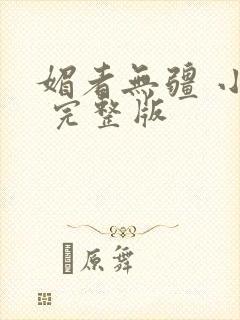 媚者無疆 小
完整版
原舞